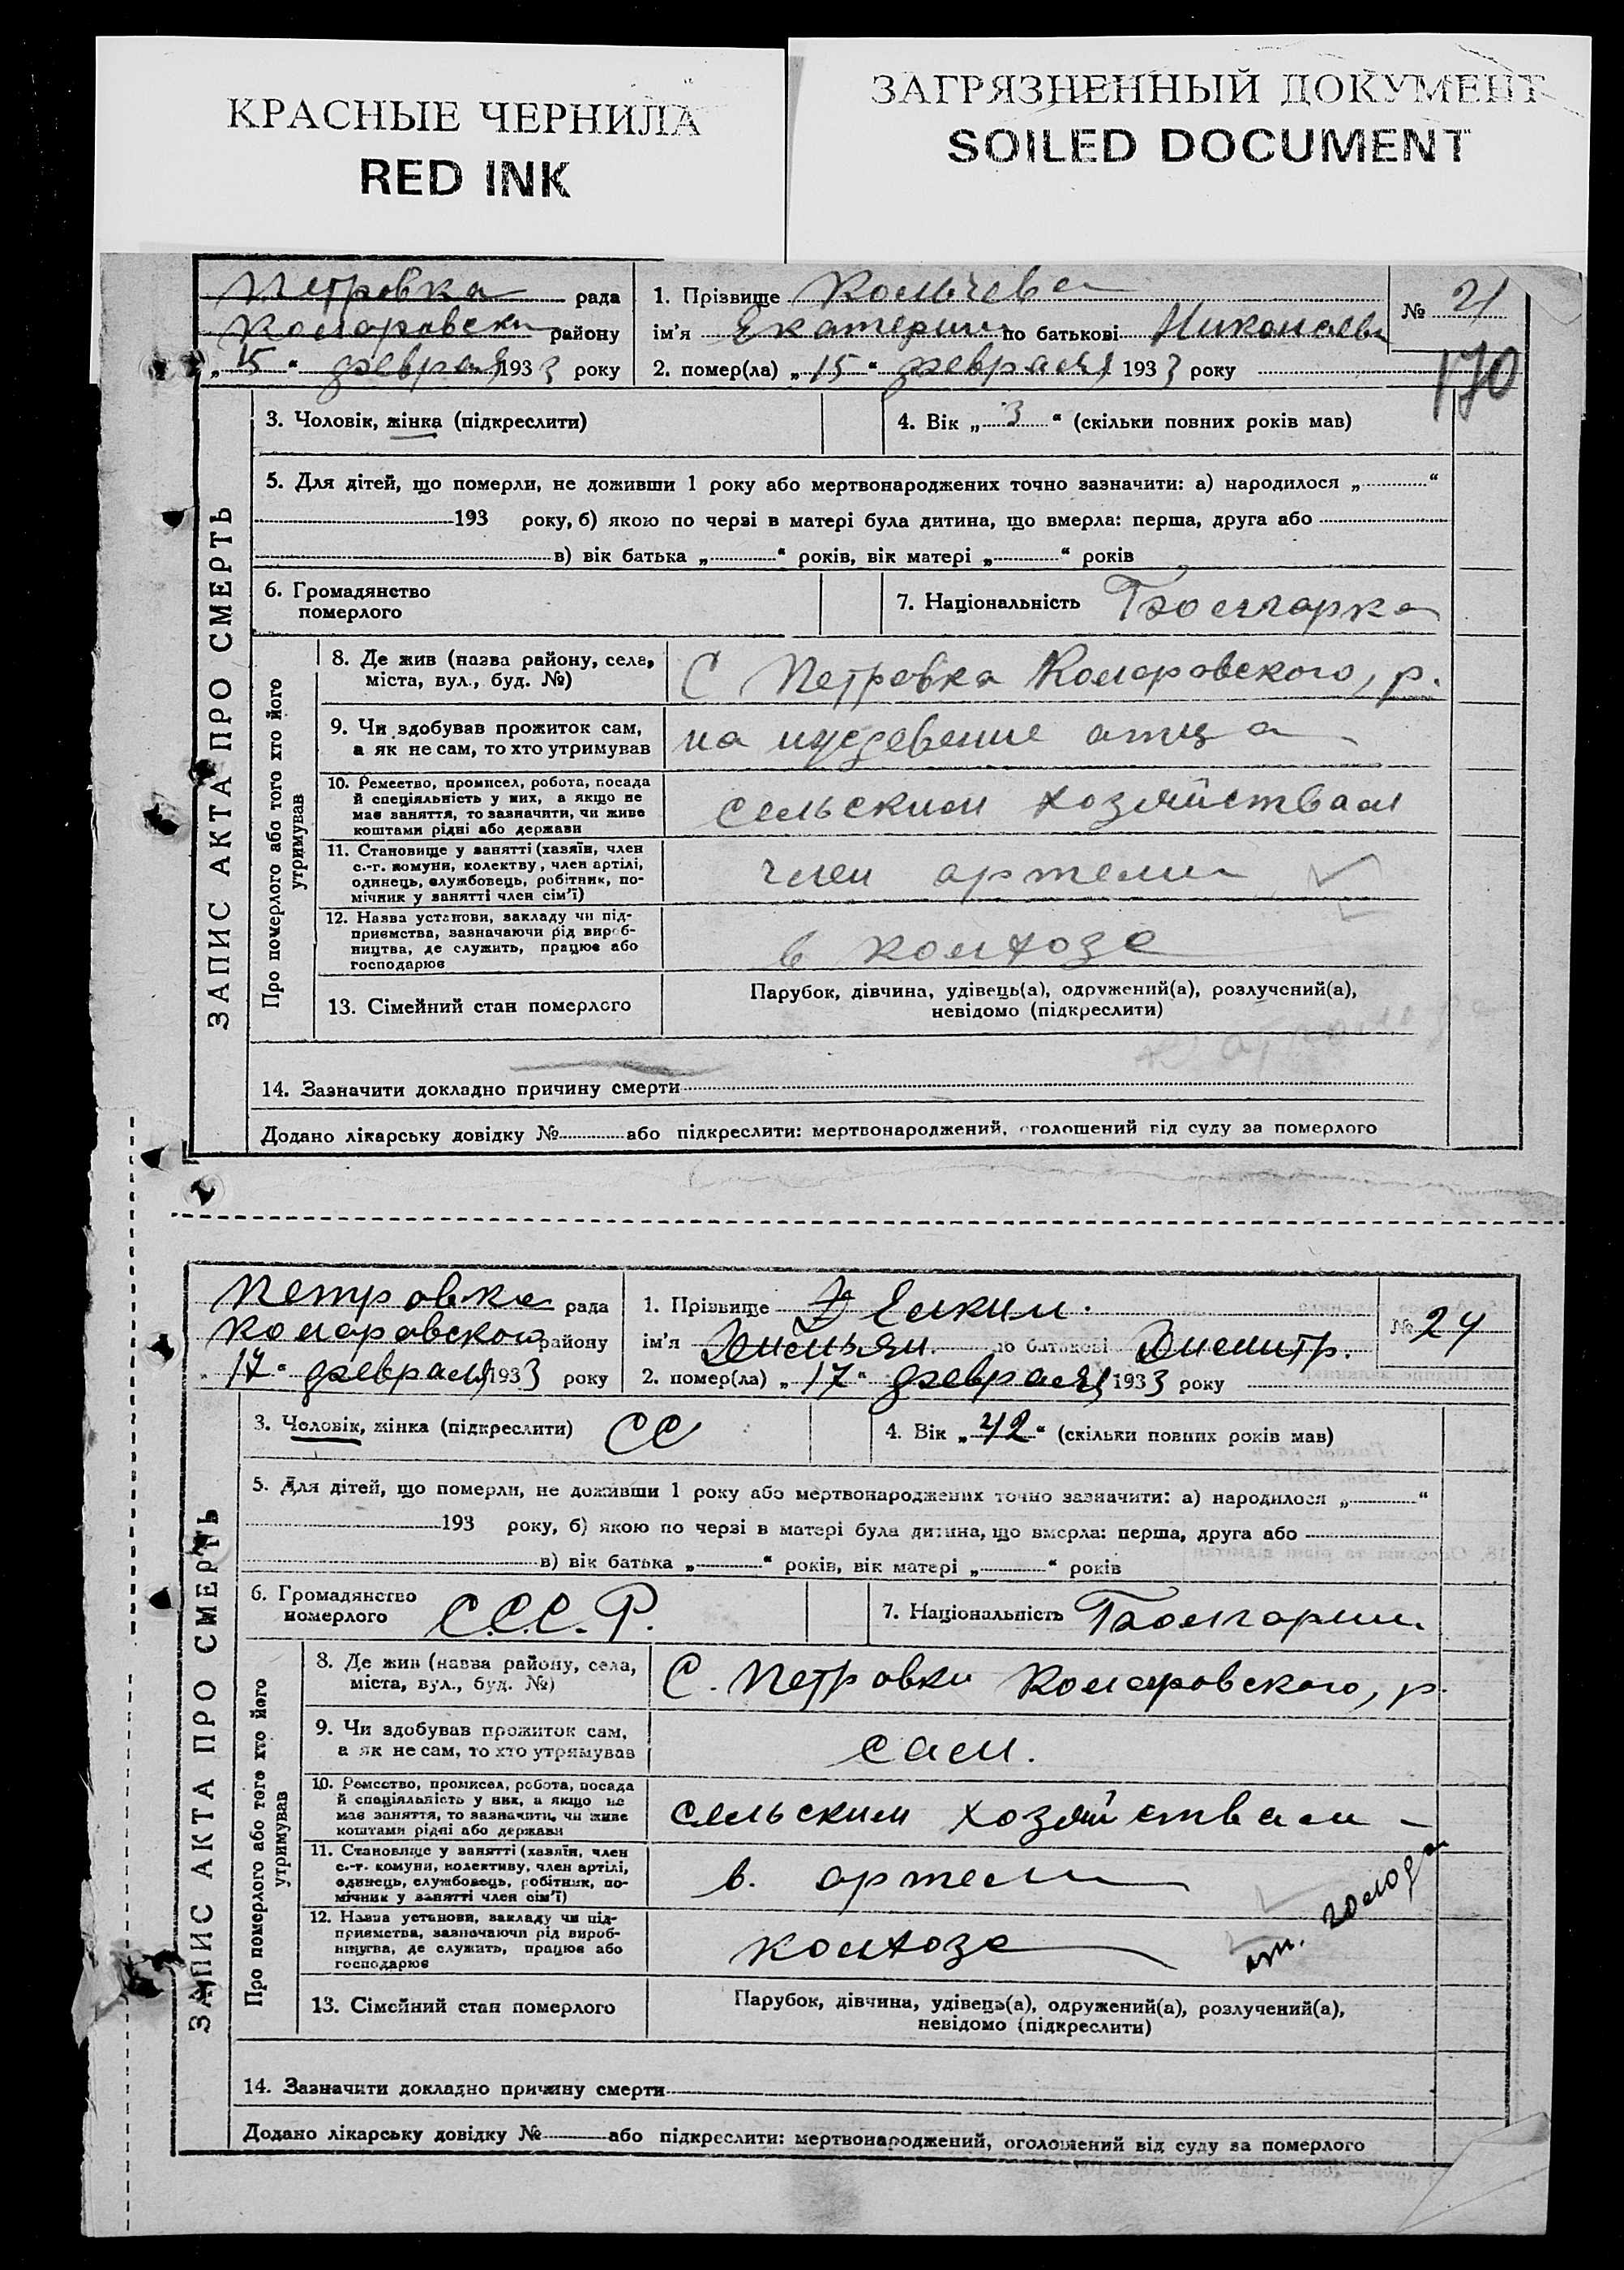 КРАСНЫЕ ЧЕРНИЛА
RED INK
ЗАГРЯЗНЕННЫЙ ДОКУМЕНТ
SOILED DOCUMENT
Петровка рада
район
„15“ февраля 1933 року
1. Прізвище
ім'я Екатерина по батькові Николаевн
2. помер(ла) „15“ февраля 1933 року
№ 21
170
ЗАПИС АКТА ПРО СМЕРТЬ
3. Чоловік, жінка (підкреслити)
4. Вік „3“ (скільки повних років мав)
5. Для дітей, що померли, не доживши 1 року або мертвонароджених точно зазначити: а) народилося „ “
193 року, б) якою по черзі в матері була дитина, що вмерла: перша, друга або
в) вік батька „ “ років, вік матері „ “ років
6. Громадянство
померлого
7. Національність Болгарка
Про померлого або того хто його
утримував
8. Де жив (назва району, села,
міста, вул., буд. №)
С Петровка Комаровского, р.
9. Чи здобував прожиток сам,
а як не сам, то хто утримував
на отца
10. Ремество, промисел, робота, посада
й спеціяльність у них, а якщо не
мав заняття, то зазначити, чи живе
коштами рідні або держави
сельским хозяйствам
11. Становище у занятті (хазяїн, член
с.-г. комуни, колектву, член артілі,
одинець, службовець, робітник, по-
мічник у занятті член сім'ї)
член артели
12. Назва установи, закладу чи під-
приємства, зазначаючи рід вироб-
ництва, де служить, працює або
господарює
в колхозе
13. Сімейний стан померлого
Парубок, дівчина, удівець(а), одружений(а), розлучений(а),
невідомо (підкреслити)
14. Зазначити докладно причину смерти
Додано лікарську довідку № або підкреслити: мертвонароджений, оголошений від суду за померлого
Петровка рада
Комаровского району
17“ февраля 1933 року
1. Прізвище
ім'я Емельян. по батькові Дмитр.
2. помер(ла) „17“ февраля 1933 року
№ 24
ЗАПИС АКТА ПРО СМЕРТЬ
3. Чоловік, жінка (підкреслити) СС
4. Вік „42“ (скільки повних років мав)
5. Для дітей, що померли, не доживши 1 року або мертвонароджених точно зазначити: а) народилося „ “
193 року, б) якою по черзі в матері була дитина, що вмерла: перша, друга або
в) вік батька „ “ років, вік матері „ “ років
6. Громадянство
померлого
С.С.С.Р.
7. Національність Болгарин
Про померлого або того хто його
утримував
8. Де жив (назва району, села,
міста, вул., буд. №)
С. Петровки Комаровского, р.
9. Чи здобував прожиток сам,
а як не сам, то хто утримував
сам.
10. Ремество, промисел, робота, посада
й спеціяльність у них, а якщо не
мав заняття, то зазначити, чи живе
коштами рідні або держави
сельским хозяйствам
11. Становище у занятті (хазяїн, член
с.-г. комуни, колективу, член артілі,
одинець, службовець, робітник, по-
мічник у занятті член сім'ї)
в. артели
12. Назва установи, закладу чи під-
приємства, зазначаючи рід вироб-
ництва, де служить, працює або
господарює
колхозе
от. голода
13. Сімейний стан померлого
Парубок, дівчина, удівець(а), одружений(а), розлучений(а),
невідомо (підкреслити)
14. Зазначити докладно причину смерти
Додано лікарську довідку № або підкреслити: мертвонароджений, оголошений від суду за померлого